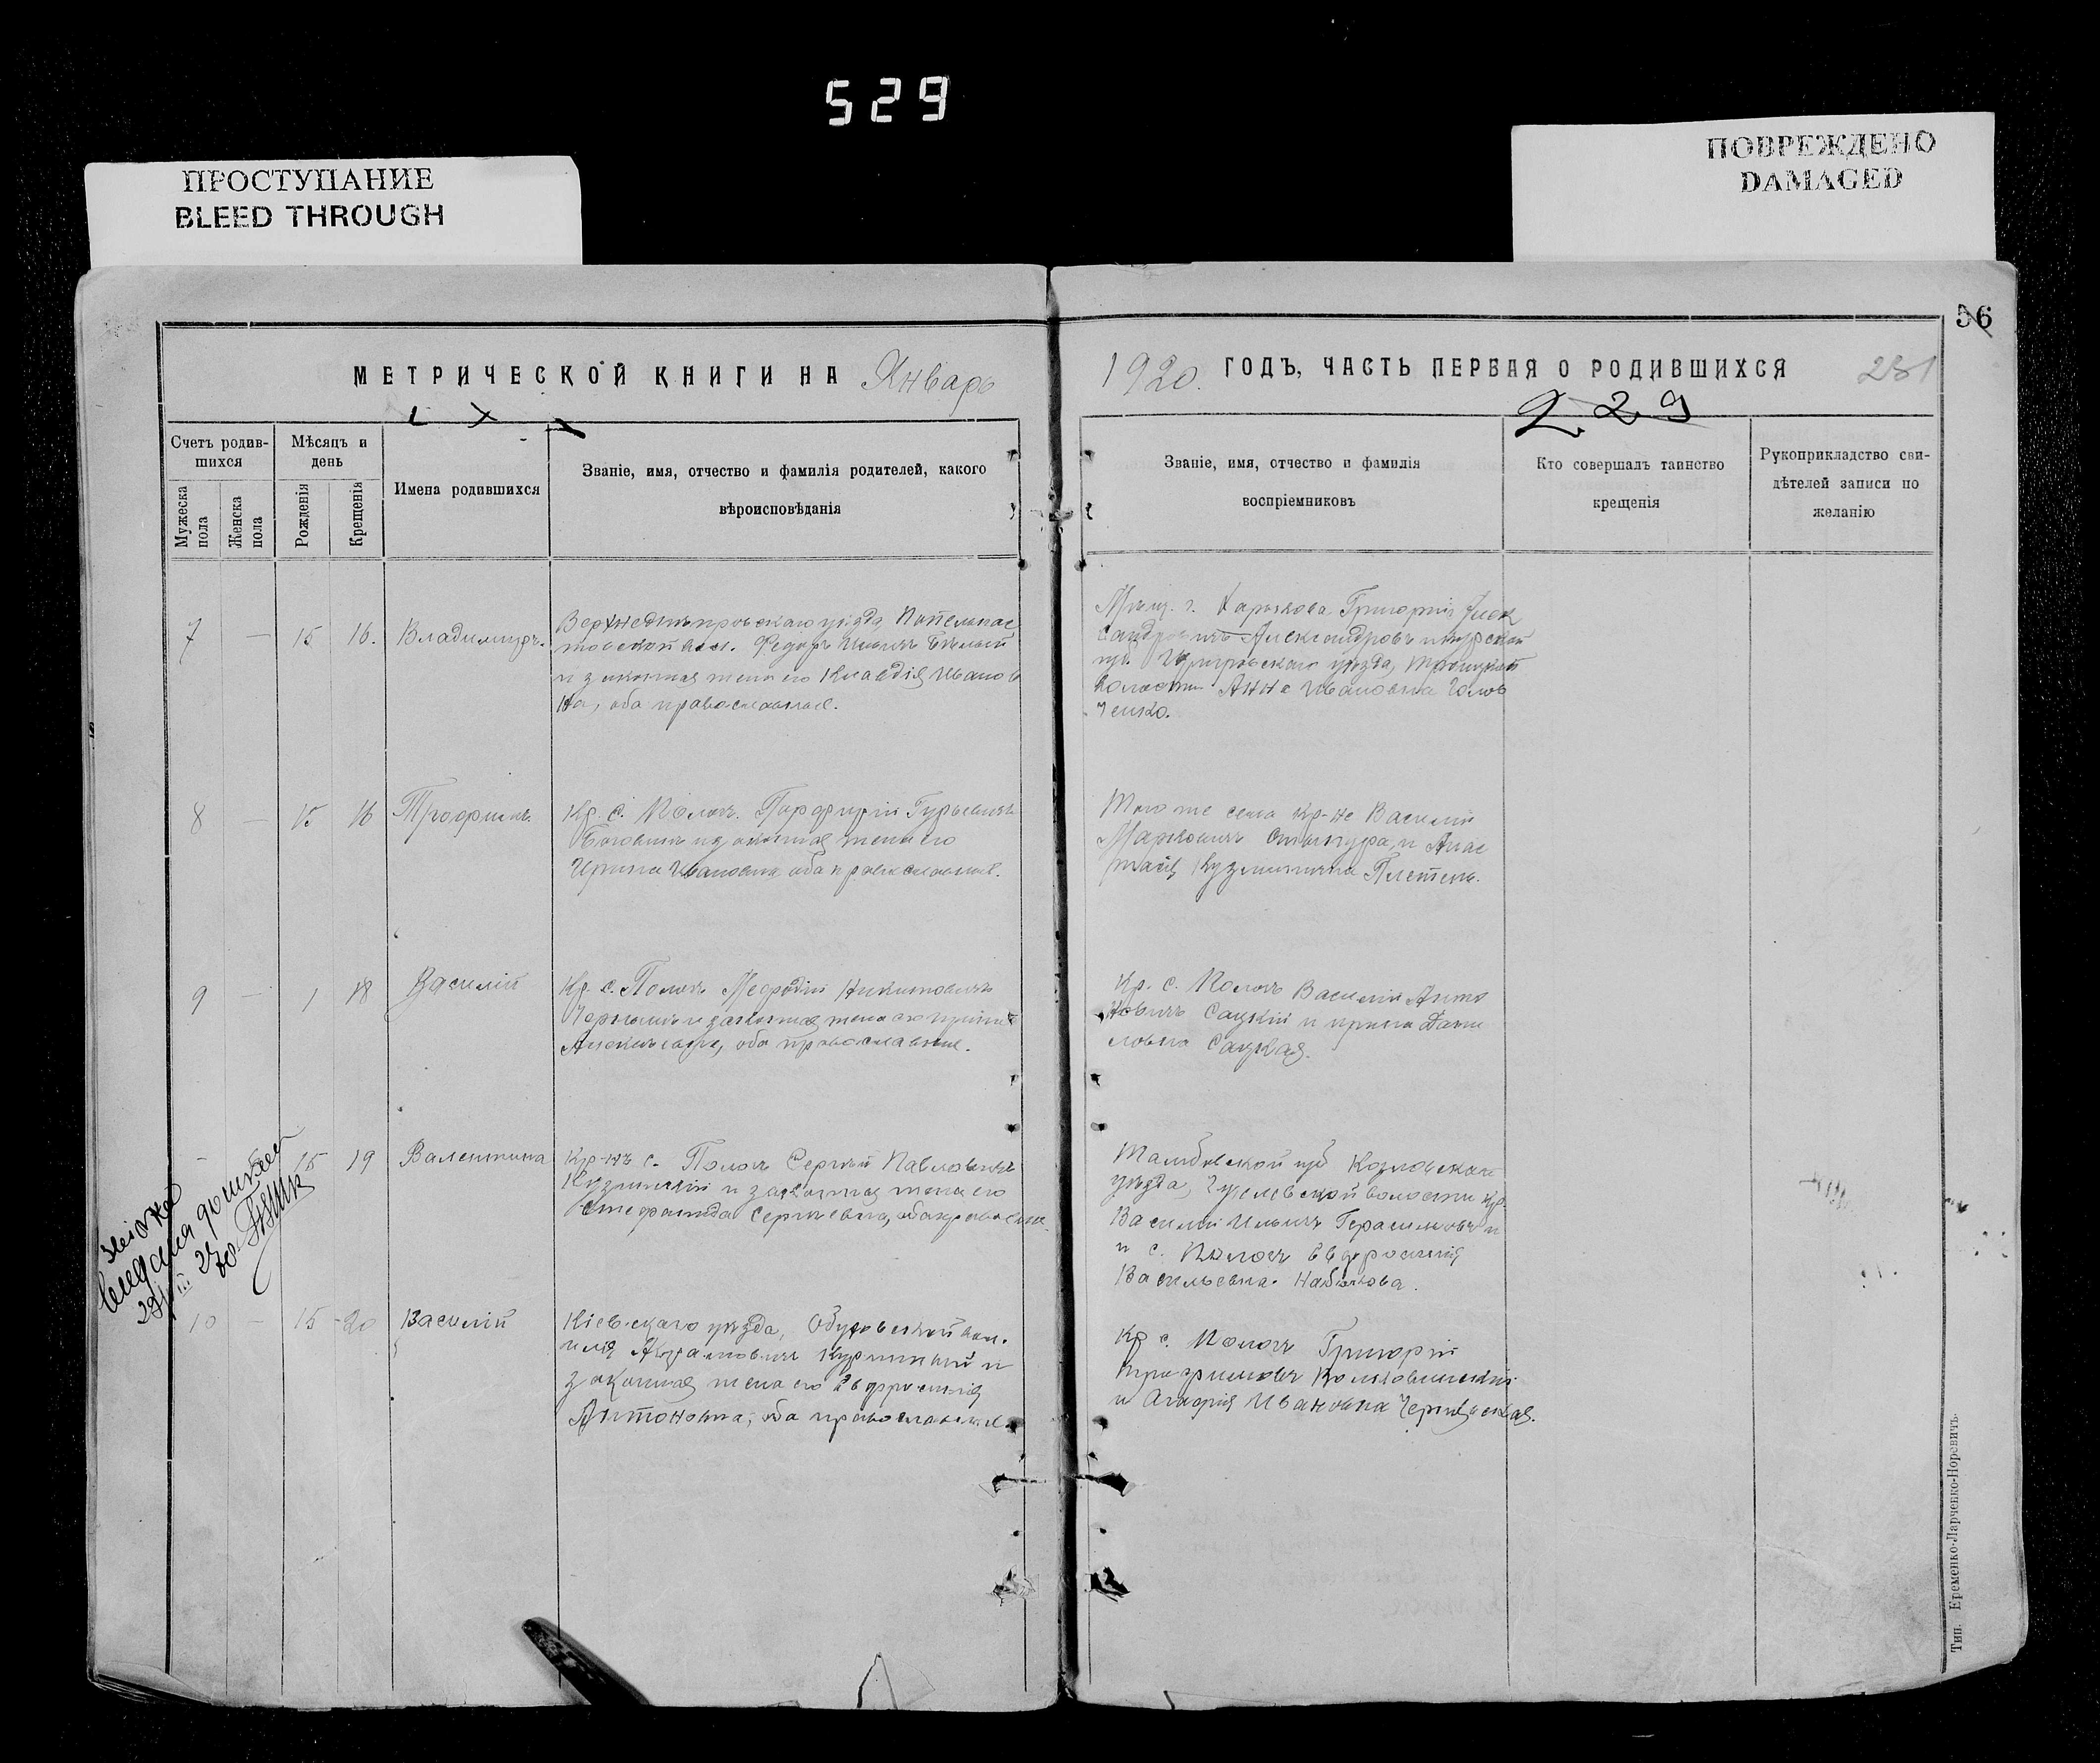 529
ПРОСТУПАНИЕ
BLEED THROUGH
ПОВРЕЖДЕНО
DAMAGED
56
МЕТРИЧЕСКОЙ КНИГИ НА Январь
1920. ГОДЪ, ЧАСТЬ ПЕРВАЯ О РОДИВШИХСЯ
281
229
Счетъ родив-
шихся
Мужеска
пола
Женска
пола
Мѣсяцъ и
день
Рожденія
Крещенія
Имена родившихся
Званіе, имя, отчество и фамилія родителей, какого
вѣроисповѣданія
Званіе, имя, отчество и фамилія
воспріемниковъ
Кто совершалъ таинство
крещенія
Рукоприкладство сви-
дѣтелей записи по
желанію
7 — 15 16. Владимиръ.
Верхнеднѣпровскаго уѣзда
вол. Федоръ Ильичъ Бѣлый
и законная жена его Клавдія Иванов
на, оба православные.
Мѣщ. г. Харькова Григорій Алек
сандровичъ Александровъ и Курской
губ. уѣзда, Троицкой
волости Анна Ивановна Голов
ченко.
8 — 15 16 Трофимъ.
Кр. с. Пологъ Порфирій Гурьевичъ
и законная жена его
Ирина Ивановна оба православные.
Того же села кр-не Василій
Марковичъ и Анас
тасія Кузминична Плетень.
9 — 1 18 Василій
Кр. с. Пологъ Меѳодій Никитовичъ
и законная жена его
Алексѣевна, оба православные.
Кр. с. Пологъ Василій Анто
новичъ Сацкій и Ирина Дани
ловна Сацкая.
- 15 19 Валентина
Кр-нъ с. Пологъ Сергѣй Павловичъ
и законная жена его
Стефанида Сергѣевна, оба православн.
Тамбовской губ Козловскаго
уѣзда, волости кр.
Василій Ильичъ Герасимовъ и
и с. Пологъ Евфросинія
Васильевна Набокова.
10 — 15 -20 Василій
Кіевскаго уѣзда, Обуховской вол.
Илія Абрамовичъ и
законная жена его Евфросинія
Антоновна, оба православные.
Кр с. Пологъ Григорій
Трофимовъ
и Агафія Ивановна
Тип. Еременко-Ларченко-Норевичъ.